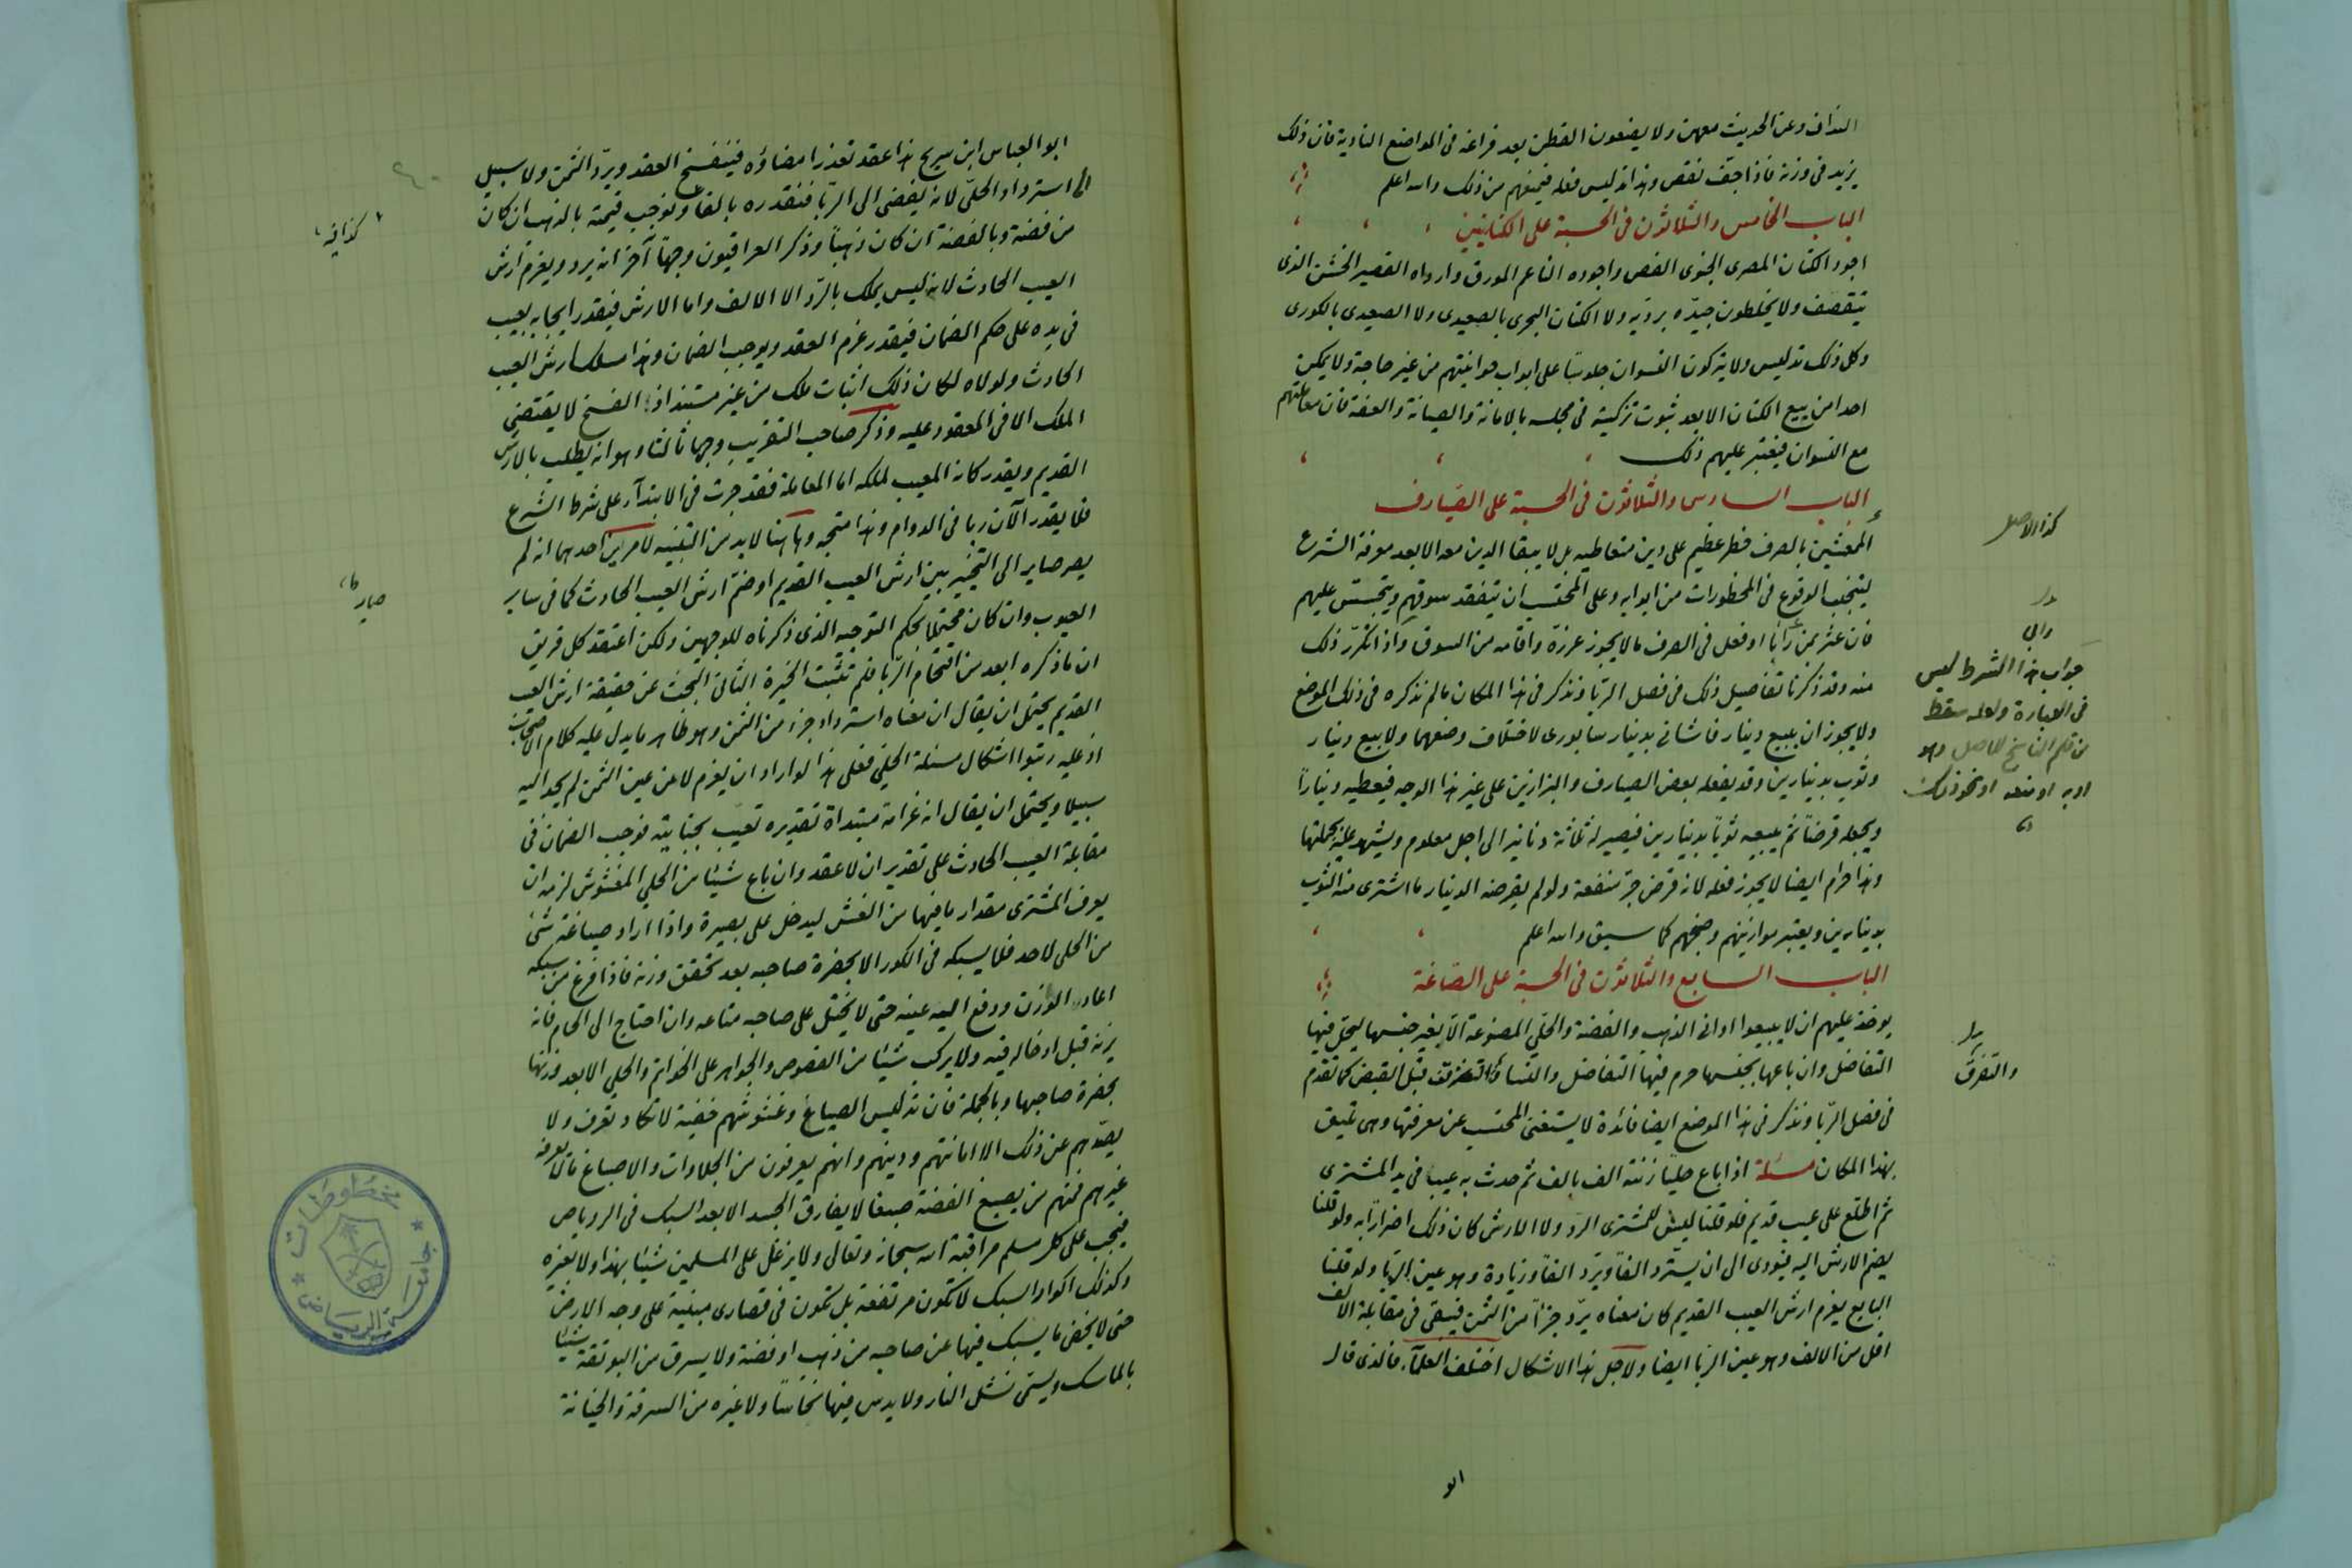 النداف وعن الحديث معهن ولا يضعون القطن بعد فراغه فى المواضع النادية فان ذلك
يزيد فى وزنه فاذا جفّ نقص وهذا تدليس فعله فيمنعهم من ذلك والله اعلم
الباب الخامس والثلاثون فى الحسبة على الكتانيين
اجود الكتان المصرى الجنوى الغض واجوده الناعم المورق وارداه القصير الخشن الذى
يتقصف ولا يخلطون جيّده برديّه ولا الكتان البحرى بالصعيدى ولا الصعيدى بالكورى
وكل ذلك تدليس ولا يتركون النسوان جلوسًا على ابواب حوانيتهم من غير حاجة ولا يمكن
احدا من بيع الكتان الا بعد ثبوت تزكيته فى مجلسه بالامانة والصيانة والعفة فان معاملتهم
مع النسوان فيعتبر عليهم ذلك
الباب السادس والثلاثون فى الحسبة على الصّيارف
المعيشين بالصرف خطر عظيم على دين متعاطيه بل لا يبقا الدين معه الا بعد معرفة الشرع
ليتجنب الوقوع فى المحظورات من ابوابه وعلى المحتسب ان يتفقد سوقهم ويتجسس عليهم
فان عثر بمن رابا او فعل فى الصرف ما لا يجوز عزرّه واقامه من السوق واذا تكرّر ذلك
منه وقد ذكرنا تفاصيل ذلك فى فصل الربا ونذكر فى هذا المكان ما لم نذكره فى ذلك الموضع
ولا يجوز ان يبيع دينار قاشانى بدينار سابورى لاختلاف وضعهما ولا بيع دينار
وثوب بدينارين وقد يفعله بعض الصيارف والبزازين على غير هذا الوجه فيعطيه دينارًا
ويجعله قرضًا ثم يبيعه ثوبًا بدينارين فيصير له ثلاثة دنانير الى اجل معلوم ويشهد عليه بجملتها
وهذا حرام ايضا لا يجوز فعله لانه قرض جرّ منفعة ولو لم يقرضه الدينار ما اشترى منه الثوب
بدينارين ويعتبر موازينهم وصنجهم كما سبق والله اعلم
الباب السابع والثلاثون فى الحسبة على الصّاغة
يوخذ عليهم ان لا يبيعوا اوانى الذهب والفضة والحلّي المصنوعة الّا بغير جنسها ليحل فيها
التفاضل وان باعها بجنسها حرم فيها التفاضل والنساؤا قبل القبض كما تقدم
فى فصل الربا ونذكر فى هذا الموضع ايضا فائدة لا يستغنى المحتسب عن معرفتها وهى تليق
بهذا المكان مسئلة اذا باع حليًا زنته الف بالف ثم حدث به عيب فى يد المشترى
ثم اطلّع على عيب قديم فلو قلنا ليس للمشترى الردّ ولا الارش كان ذلك اضرارًا به ولو قلنا
يضم الارش اليه فيودى الى ان يستّرد الفًا ويرّد الفًا وزيادة وهو عين الربا ولو قلنا
البايع يغرم ارش العيب القديم كان معناه يردّ جزأً من الثمن فيبقى فى مقابلة الالف
اقل من الالف وهو عين الربا ايضا ولاجل هذا الاشكال اختلف العلمآء فالذى قال
ابو
كذا الاصل
وابى
جواب هذا الشرط ليس
فى العبارة ولعله سقط
من قلم الناسخ للاصل وهو
ادبه او منعه او نحو ذلك
والتفرق
ابو العباس ابن سريج هذا عقد تعذر امضاؤه فينفسخ العقد ويردّ الثمن ولا سبيل
الى استرداد الحلّي لانه يفضى الى الربا فنقدره بالفا ونوجب قيمته بالذهب ان كان
من فضة وبالفضة ان كان ذهبًا وذكر العراقيون وجهًا آخر انه يرد ويغرم ارش
العيب الحادث لانه ليس يملك بالرّد الا الالف واما الارش فيقدر ايجابه بعيب
فى يده على حكم الضمان فيقدر غرم العقد ويوجب الضمان وهذا مسلك ارش العيب
الحادث ولولاه لكان ذلك اثبات ملك من غير مستند اذ الفسخ لا يقتضى
الملك الا فى المعقود عليه وذكر صاحب التقريب وجها ثالثا وهو انه يطلب بالارش
القديم ويقدر كانه المعيب لملكه اما المعاملة فقد جرت فى الابتدآء على شرط الشرع
فلما يقدر الآن ربا فى الدوام وهذا متجه وهاهنا لا بد من التنبيه لامرين احدهما انه لم
يصر صاير الى التخيير بين ارش العيب القديم او ضمّ ارش العيب الحادث كما فى ساير
العيوب وان كان محتملًا بحكم التوجيه الذى ذكرناه للوجهين ولكن اعتقد كل فريق
ان ما ذكره ابعد من اقتحام الربا فلم تثبت الخيرة الثانى البحث عن حقيقة ارش العيب
القديم يحتمل ان يقال ان معناه استرداد جزء من الثمن وهو ظاهر ما يدل عليه كلام الاصحاب
اذ عليه رتبوا اشكال مسئلة الحلي فعلى هذا لو اراد ان يغرم لا من عين الثمن لم يجد اليه
سبيلا ويحتمل ان يقال انه غرامة مبتداة تقديره تعيّب بجنايته فوجب الضمان فى
مقابلة العيب الحادث على تقدير ان لا عقد وان باع شيئا من الحلي المغشوش لزمه ان
يعرف المشترى مقدار ما فيها من الغش ليدخل على بصيرة واذا اراد صياغة شئ
من الحلى لاحد فلا يسبكه فى الكور الا بحضرة صاحبه بعد تحقق وزنه فاذا فرغ من سبكه
اعاد الوزن ودفع اليه عينه حتى لا يختل على صاحبه متاعه وان احتاج الى لحام فانه
يزنه قبل ادخاله فيه ولا يركب شيئا من الفصوص والجواهر على الخواتم والحلي الا بعد وزنها
بحضرة صاحبها وبالجملة فان تدليس الصياغ وغشوشهم خفية لا تكاد تعرف ولا
يصدهم عن ذلك الا امانتهم ودينهم وانهم يعرفون من الجلاوات والاصباغ ما لا يعرفه
غيرهم فمنهم من يصبغ الفضة صبغا لا يفارق الجسد الا بعد السبك فى الروباص
فيجب على كل مسلم مراقبة الله سبحانه وتعالى ولا يزغل على المسلمين شيئا بهذا ولا بغيره
وكذلك اكوار السبك لا تكون مرتفعة بل تكون فى قصارى مبنية على وجه الارض
حتى لا يخفى ما يسبك فيها عن صاحبه من ذهب او فضة ولا يسرق من البوتقة شيئا
بالماسك ويسمى نشل النار ولا يدس فيها نحاسًا ولا غيره من السرقة والخيانة
كذا فيه
صار
٤٠
مخطوطات
جامعة الرياض